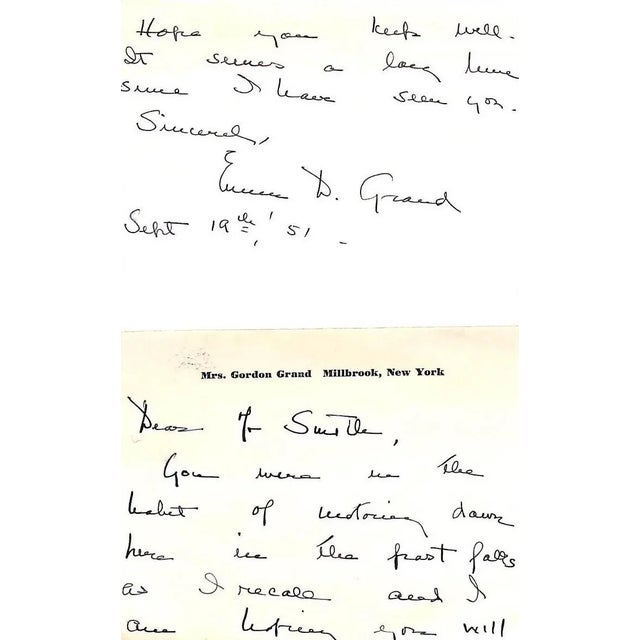 Hope you keep well.
It seems a long time
since I have seen you.
Sincerely,
Emma D. Grand
Sept 19th, '51 -
Mrs. Gordon Grand Millbrook, New York
Dear Mr Smith,
You were in the
habit of motoring down
here in the past falls
as I recall and I
am hoping you will